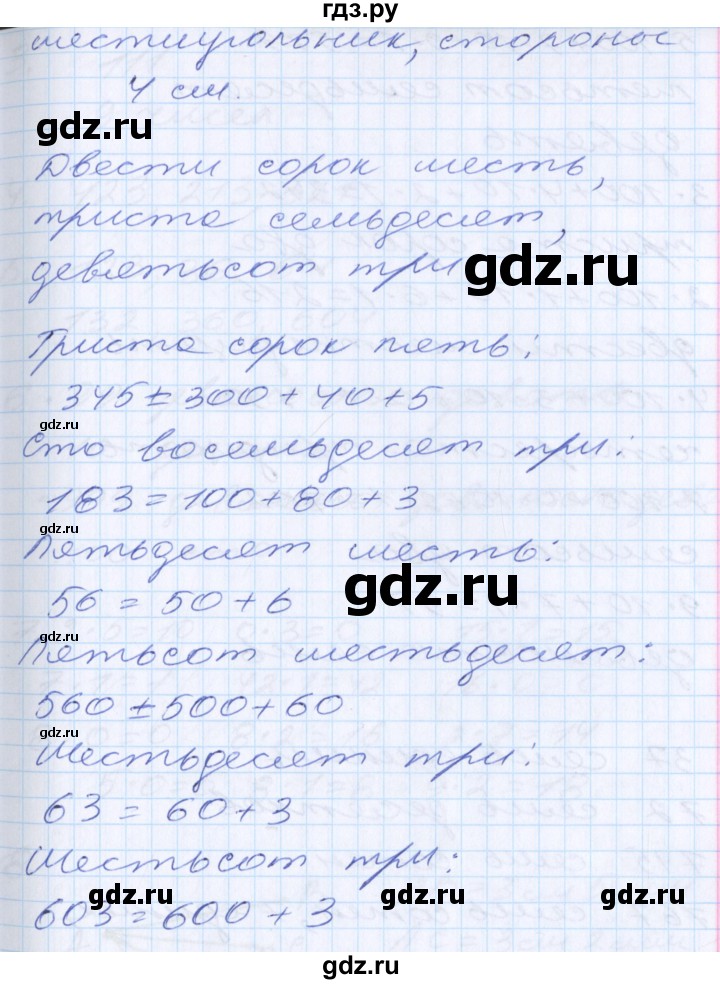 гдз.ру
шестиугольник, стороны
4 см.
gdz.ru
Двести сорок шесть,
триста семьдесят,
девятьсот три
gdz.ru
Триста сорок пять:
345 ± 300 + 40 + 5
gdz.ru
Сто восемьдесят три:
183 = 100 + 80 + 3
gdz.ru
Пятьдесят шесть:
56 = 50 + 6
gdz.ru
gdz.ru
Пятьсот шестьдесят:
560 ± 500 + 60
gdz.ru
Шестьдесят три:
63 = 60 + 3
gdz.ru
Шестьсот три:
603 = 600 + 3
gdz.ru gdz.ru gdz.ru
gdz.ru